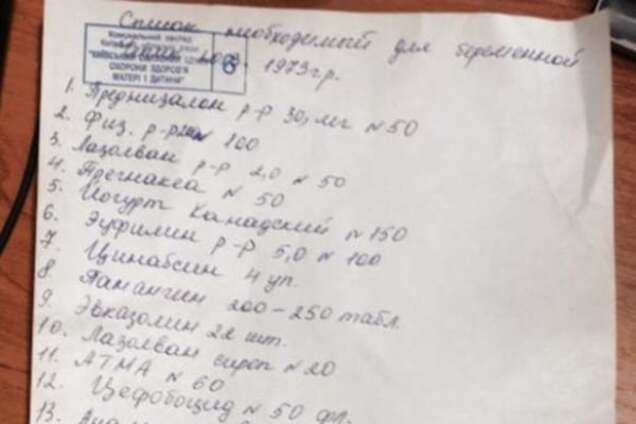 Список необходимый для беременной
1973 г.р.
Комунальний заклад
"КИЇВСЬКИЙ ОБЛАСНИЙ ЦЕНТР
ОХОРОНИ ЗДОРОВ'Я
МАТЕРІ І ДИТИНИ"
6
1. Преднизалон р-р 30, мг N 50
2. Физ. р-р N 100
3. Лазолван р-р 2,0 N 50
4. Прегнакеа N 50
5. Йогурт Канадский N 150
6. Эуфилин р-р 5,0 N 100
7. Цинабсин 4 уп.
8. Панангин 200-250 табл.
9. Эвказолин 22 шт.
10. Лазолван сироп N 20
11. АТМА N 60
12. Цефобоцид N 50 фл.
13.